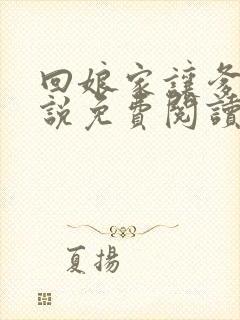 回娘家讓爹
說免費閱讀
夏揚